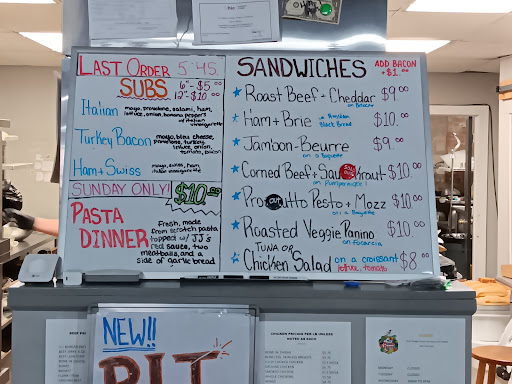 LAST ORDER 5:45
SUBS 6"-$5.00
12"-$10.00
Italian mayo, provolone, salami, ham,
lettuce, onion, banana peppers
w/ Italian
vinaigrette
Turkey Bacon mayo, bleu cheese,
provolone, turkey,
lettuce, onion,
tomato, bacon
Ham + Swiss mayo, swiss, ham,
SUNDAY ONLY! $10.00
PASTA
DINNER
Fresh, made
from scratch pasta
topped w/ JJ's
red sauce, two
meatballs, and a
side of garlic bread
SANDWICHES ADD BACON
+$1.00
Roast Beef - Cheddar $9.00
on Focaccia
Ham + Brie on
Black Bread $10.00
Jambon-Beurre $9.00
on a Baguette
Corned Beef + Sauerkraut - $10.00
on Pumpernickel
Prosciutto Pesto + Mozz $10.00
OUT
on a Baguette
Roasted Veggie Panino $10.00
on Focaccia
TUNA OR
Chicken Salad on a croissant $8.00
lettuce, tomato
NEW!!
PIT